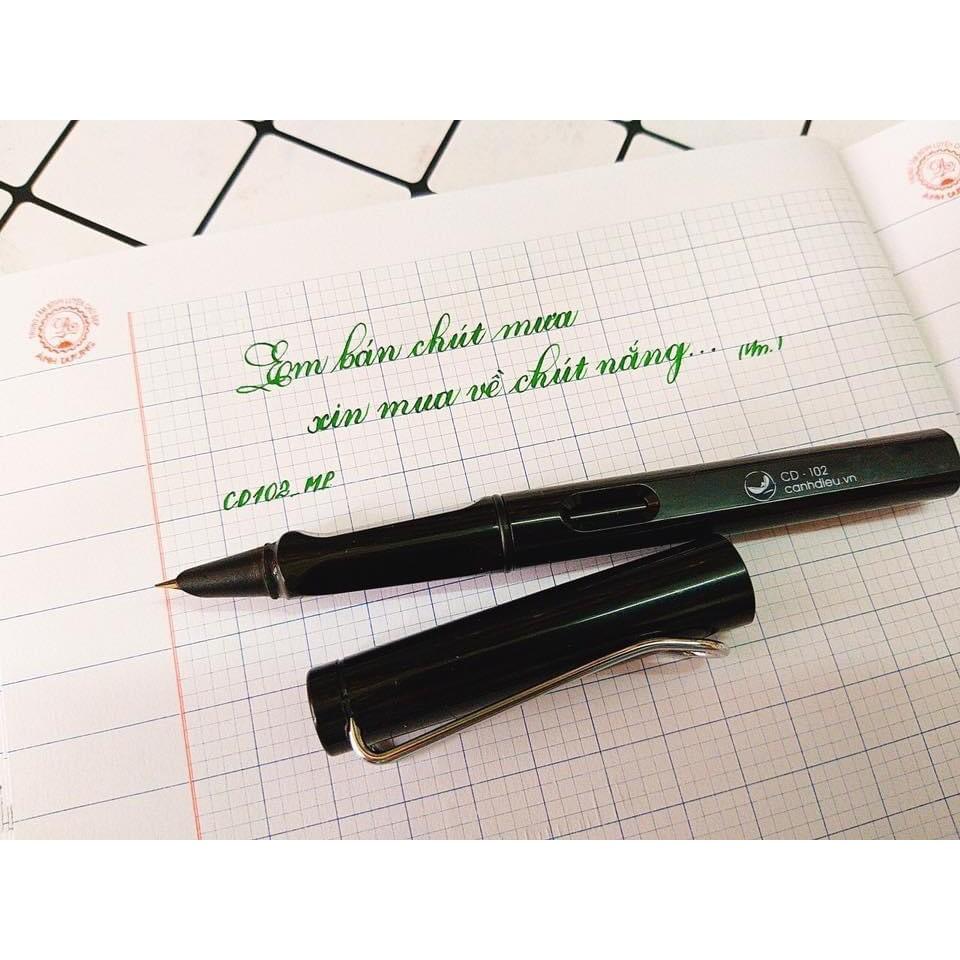 Em bán chút mưa
xin mua về chút nắng... (Vm.)
CD102_MP
CD - 102
canhdieu.vn
ÁNH DƯƠNG